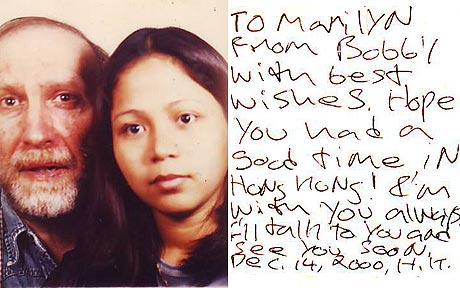 To Marilyn
From Bobby
with best
wishes. Hope
you had a
good time in
Hong Kong! I'm
with you always
I'll talk to you and
see you soon,
Dec. 14, 2000, H.K.